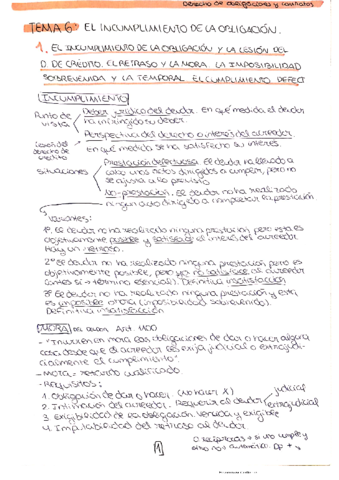 Derecho de obligaciones y contratos
TEMA 6: EL INCUMPLIMIENTO DE LA OBLIGACIÓN.
1. EL INCUMPLIMIENTO DE LA OBLIGACIÓN Y LA LESIÓN DEL
D. DE CRÉDITO. EL RETRASO Y LA MORA. LA IMPOSIBILIDAD
SOBREVENIDA Y LA TEMPORAL. EL CUMPLIMIENTO DEFECT
INCUMPLIMIENTO
Punto de vista
Deber jurídico del deudor. En qué medida el deudor
ha infringido su deber.
Perspectiva del derecho o interés del acreedor
En qué medida se ha satisfecho su interés.
Lesión del derecho de crédito
Situaciones
Prestación defectuosa. El deudor ha llevado a
cabo unos actos dirigidos a cumplir, pero no
se ajusta a lo previsto
No-prestación. El deudor no ha realizado
ningún acto dirigido a completar la prestación
Variantes:
1º El deudor no ha realizado ninguna prestación pero esta es
objetivamente posible y satisface el interés del acreedor.
Hay un retraso.
2º El deudor no ha realizado ninguna prestación pero es
objetivamente posible, pero ya no satisface al acreedor
(antes sí → término esencial). Definitiva insatisfacción
3º El deudor no ha realizado ninguna prestación y esta
es imposible ahora (imposibilidad sobrevenida).
Definitiva insatisfacción.
MORA del deudor Art. 1100
- "Incurren en mora los obligados a dar o hacer alguna
cosa desde que el acreedor les exija judicial o extrajudi-
cialmente el cumplimiento".
- Mora = retraso cualificado
- Requisitos:
1. Obligación de dar o hacer (no hacer X)
2. Intimación del acreedor. Requerir al deudor
judicial
extrajudicial
3. Exigibilidad de la obligación. Vencida y exigible
4. Imputabilidad del retraso al deudor
O recíprocas → si uno cumple y
otro no → automática.
1